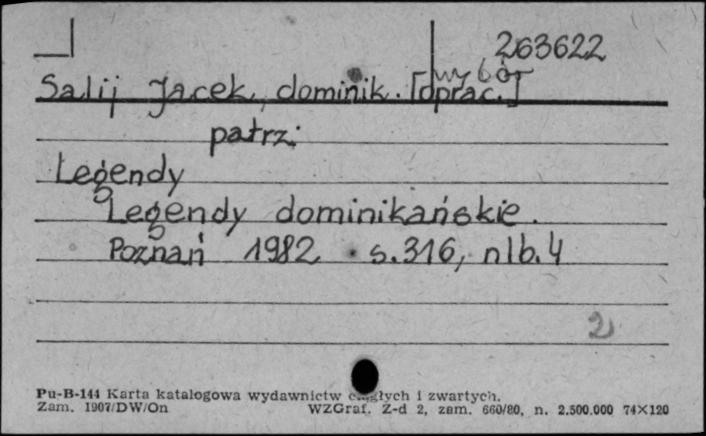 263622
wybór
Salij Jacek, dominik. [oprac.]
patrz:
Legendy
Legendy dominikańskie.
Poznań 1982 s. 316, nlb. 4
2
Pu-B-144 Karta katalogowa wydawnictw ciągłych i zwartych.
Zam. 1907/DW/On WZGraf. Z-d 2, zam. 660/80, n. 2.500.000 74×120